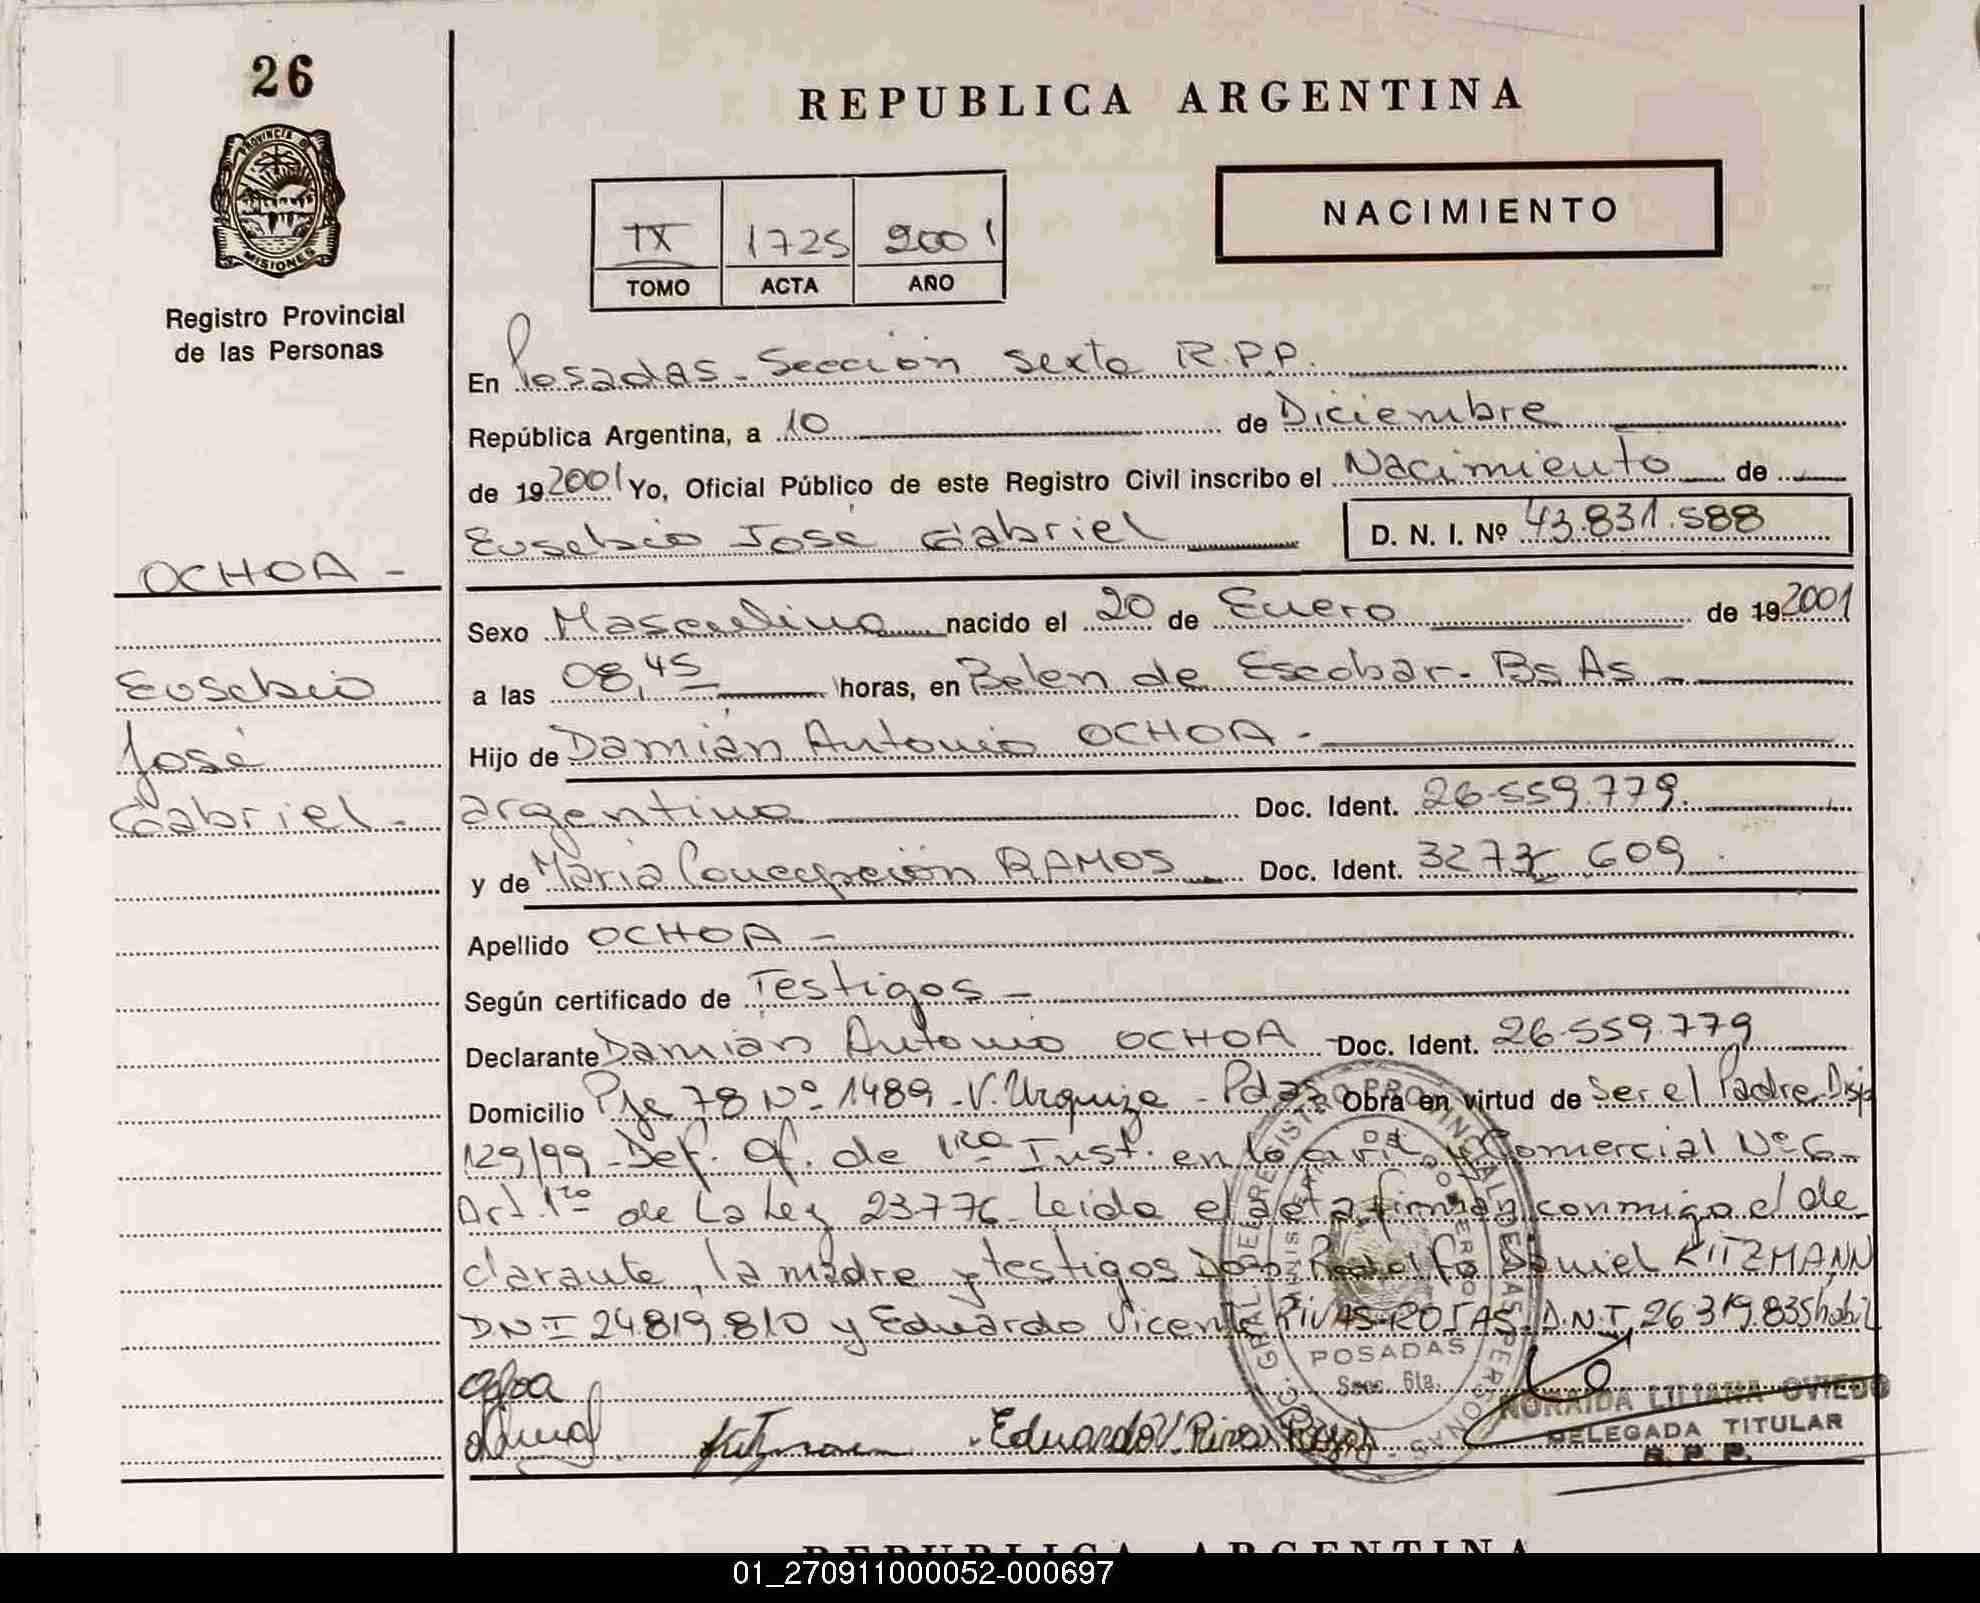 26
PROVINCIA DE
MISIONES
Registro Provincial
de las Personas
OCHOA -
Eusebio
José
Gabriel -
REPUBLICA ARGENTINA
IX 1725 2001
TOMO ACTA AÑO
NACIMIENTO
En Posadas - Sección Sexta R.P.P.
República Argentina, a 10 de Diciembre
de 19 2001 Yo, Oficial Público de este Registro Civil inscribo el Nacimiento de
Eusebio José Gabriel D. N. I. Nº 43.831.588
Sexo Masculino nacido el 20 de Enero de 19 2001
a las 08,45 horas, en Belen de Escobar - Bs As
Hijo de Damián Antonio OCHOA -
argentino Doc. Ident. 26.559.779.
y de María Concepción RAMOS Doc. Ident. 609
Apellido OCHOA -
Según certificado de Testigos -
Declarante Damián Antonio OCHOA - Doc. Ident. 26.559.779
Domicilio Pje 78 Nº 1489 - V. Urquiza - Pdas Obra en virtud de Ser el Padre. Disp
129/99 - Def. Of. de 1ra Inst. en lo Civil y Comercial Nº 6 -
Art. 1ro de la Ley 23776 - Leida el acta firman conmigo el de
clarante, la madre y testigos Don Rodolfo Daniel KITZMANN
DNI 24.819.810 y Eduardo Vicente RIVAS ROJAS D.N.I. 26.319.835 habil
Eduardo V. Rivas Rojas
POSADAS
Secc. 6ta.
NORAIDA LILIANA OVIEDO
DELEGADA TITULAR
R. P. P.
REPUBLICA ARGENTINA
01_270911000052-000697